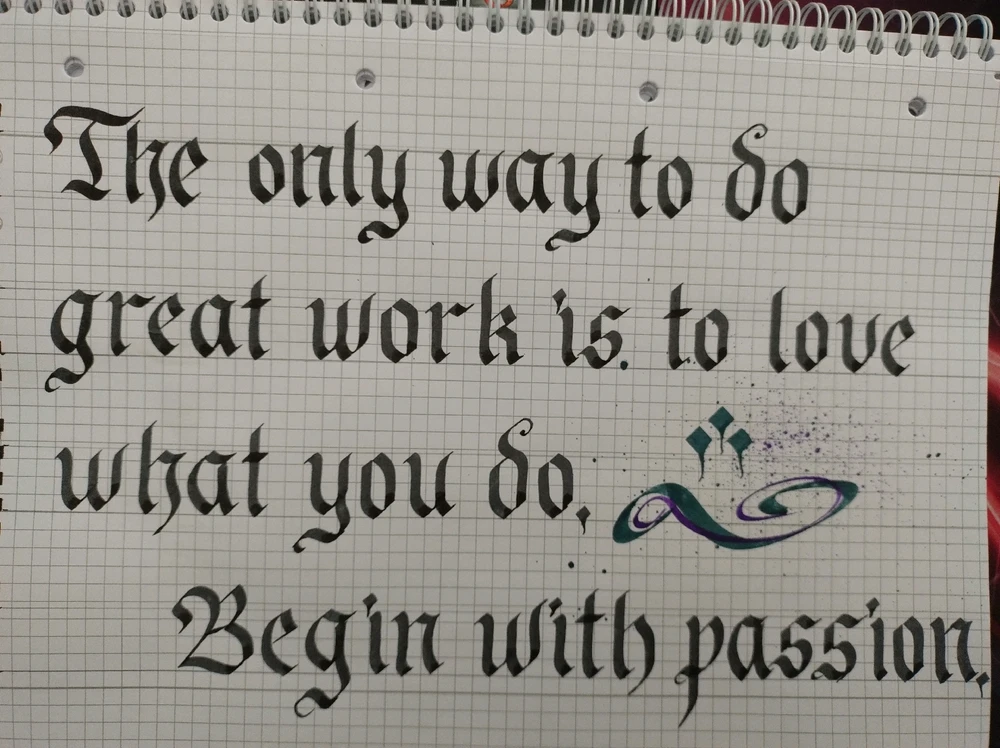 The only way to do
great work is. to love
what you do,
Begin with passion.